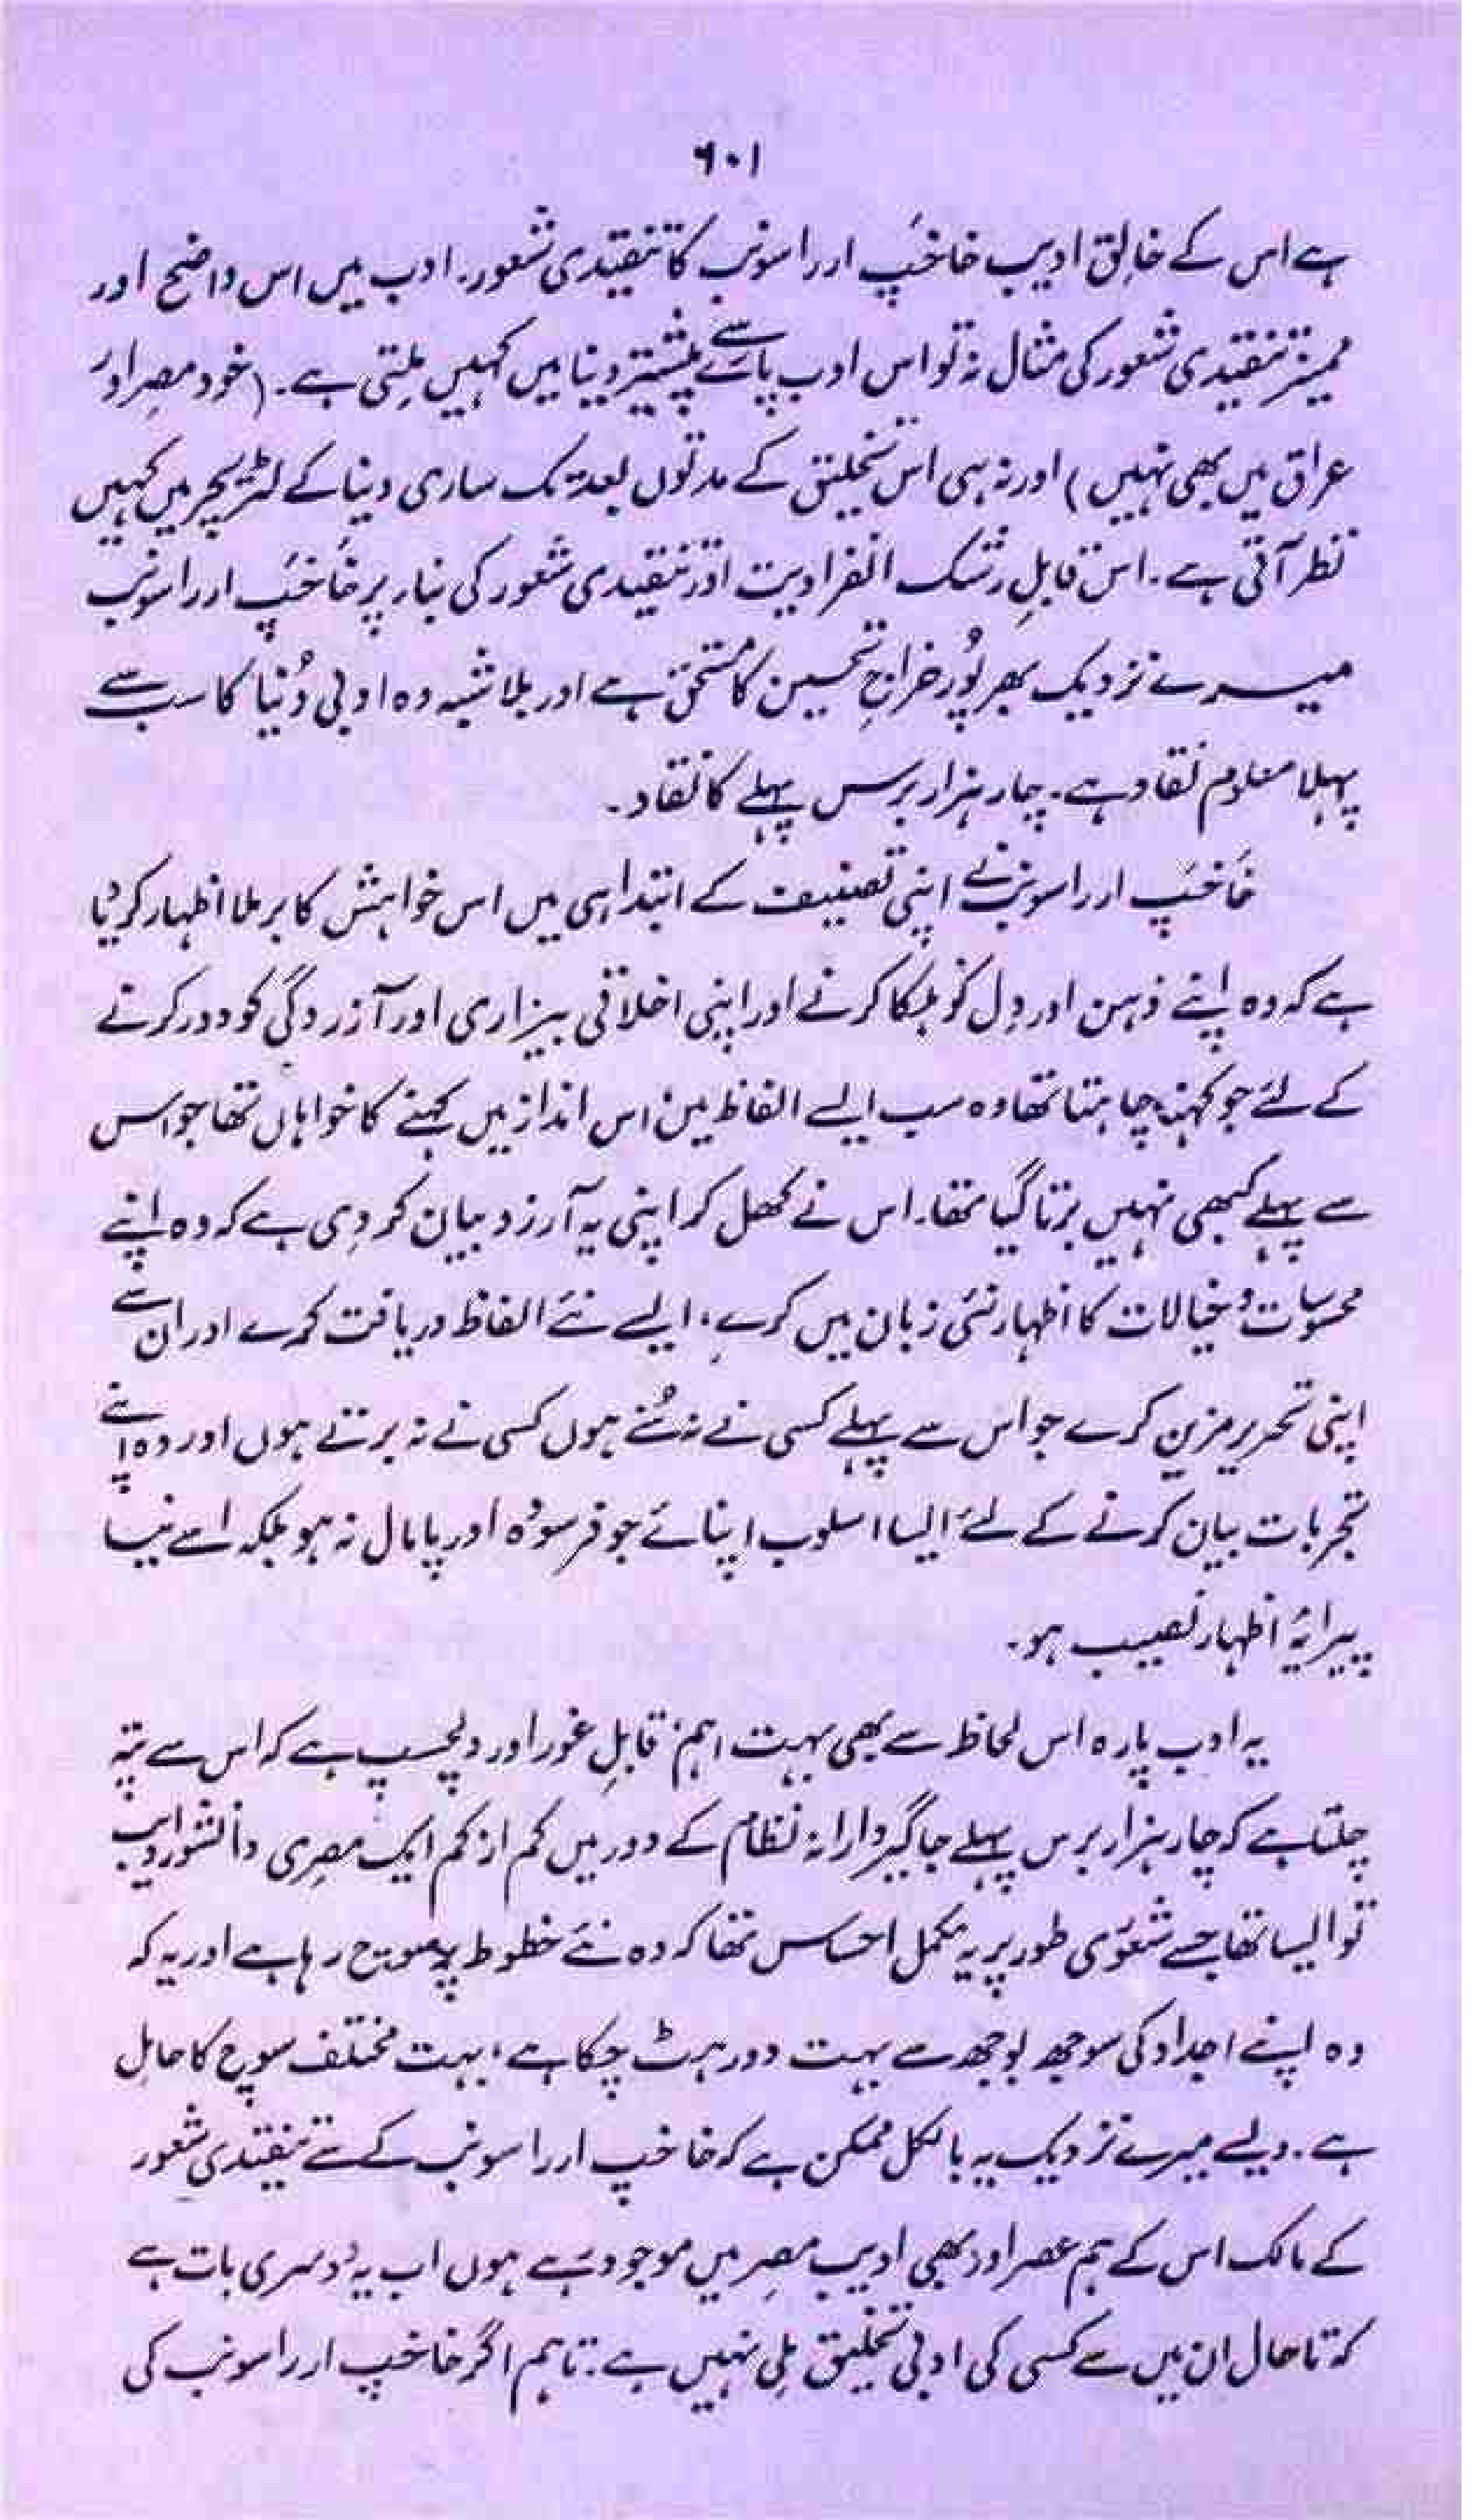 ۶۰۱
ہے اس کے خالق ادیب خاخپ اررا سونب کا تنقیدی شعور۔ ادب میں اس واضح اور
ممیز تنقیدی شعور کی مثال نہ تو اس ادب پارے سے پیشتر دنیا میں کہیں ملتی ہے۔ (خود مصر اور
عراق میں بھی نہیں) اور نہ ہی اس تخلیق کے مدتوں بعد تک ساری دنیا کے لٹریچر میں کہیں
نظر آتی ہے۔ اس قابلِ رشک انفرادیت اور تنقیدی شعور کی بناء پر خاخپ اررا سونب
میرے نزدیک بھرپُور خراجِ تحسین کا مستحق ہے اور بلا شبہ وہ ادبی دُنیا کا سب سے
پہلا معلوم نقاد ہے۔ چار ہزار برس پہلے کا نقاد۔
خاخپ اررا سونب نے اپنی تصنیف کے ابتدا ہی میں اس خواہش کا برملا اظہار کر دیا
ہے کہ وہ اپنے ذہن اور دِل کو ہلکا کرنے اور اپنی اخلاقی بیزاری اور آزردگی کو دور کرنے
کے لئے جو کہنا چاہتا تھا وہ سب ایسے الفاظ میں اس انداز میں کہنے کا خواہاں تھا جو اس
سے پہلے کبھی نہیں برتا گیا تھا۔ اس نے کھل کر اپنی یہ آرزو بیان کر دی ہے کہ وہ اپنے
محسوسات و خیالات کا اظہار نئی زبان میں کرے، ایسے نئے الفاظ دریافت کرے اور ان سے
اپنی تحریر مزین کرے جو اس سے پہلے کسی نے نہ سُنے ہوں کسی نے نہ برتے ہوں اور وہ اپنے
تجربات بیان کرنے کے لئے ایسا اسلوب اپنائے جو فرسودہ اور پامال نہ ہو بلکہ اسے نیا
پیرایۂ اظہار نصیب ہو۔
یہ ادب پارہ اس لحاظ سے بھی بہت اہم، قابلِ غور اور دلچسپ ہے کہ اس سے پتہ
چلتا ہے کہ چار ہزار برس پہلے جاگیردارانہ نظام کے دور میں کم از کم ایک مصری دانشور ادیب
تو ایسا تھا جسے شعوری طور پر یہ مکمل احساس تھا کہ وہ نئے خطوط پر سوچ رہا ہے اور یہ کہ
وہ اپنے اجداد کی سوجھ بوجھ سے بہت دور ہٹ چکا ہے، بہت مختلف سوچ کا حامل
ہے۔ ویسے میرے نزدیک یہ بالکل ممکن ہے کہ خاخپ اررا سونب کے سے تنقیدی شعور
کے مالک اس کے ہم عصر اور بھی ادیب مصر میں موجود رہے ہوں اب یہ دُوسری بات ہے
کہ تاحال ان میں سے کسی کی ادبی تخلیق ملی نہیں ہے۔ تاہم اگر خاخپ اررا سونب کی